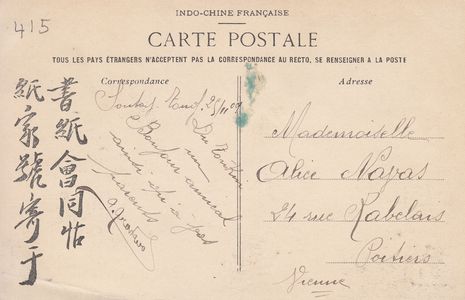 415
INDO-CHINE FRANÇAISE
CARTE POSTALE
TOUS LES PAYS ÉTRANGERS N'ACCEPTENT PAS LA CORRESPONDANCE AU RECTO, SE RENSEIGNER A LA POSTE
Correspondance
Adresse
書紙會同帖
紙家號寄于
Du Tonkin
un
Bonjour amical
ainsi qu'à
parents
Mademoiselle
Alice Nayas
24 rue Rabelais
Poitiers
Vienne